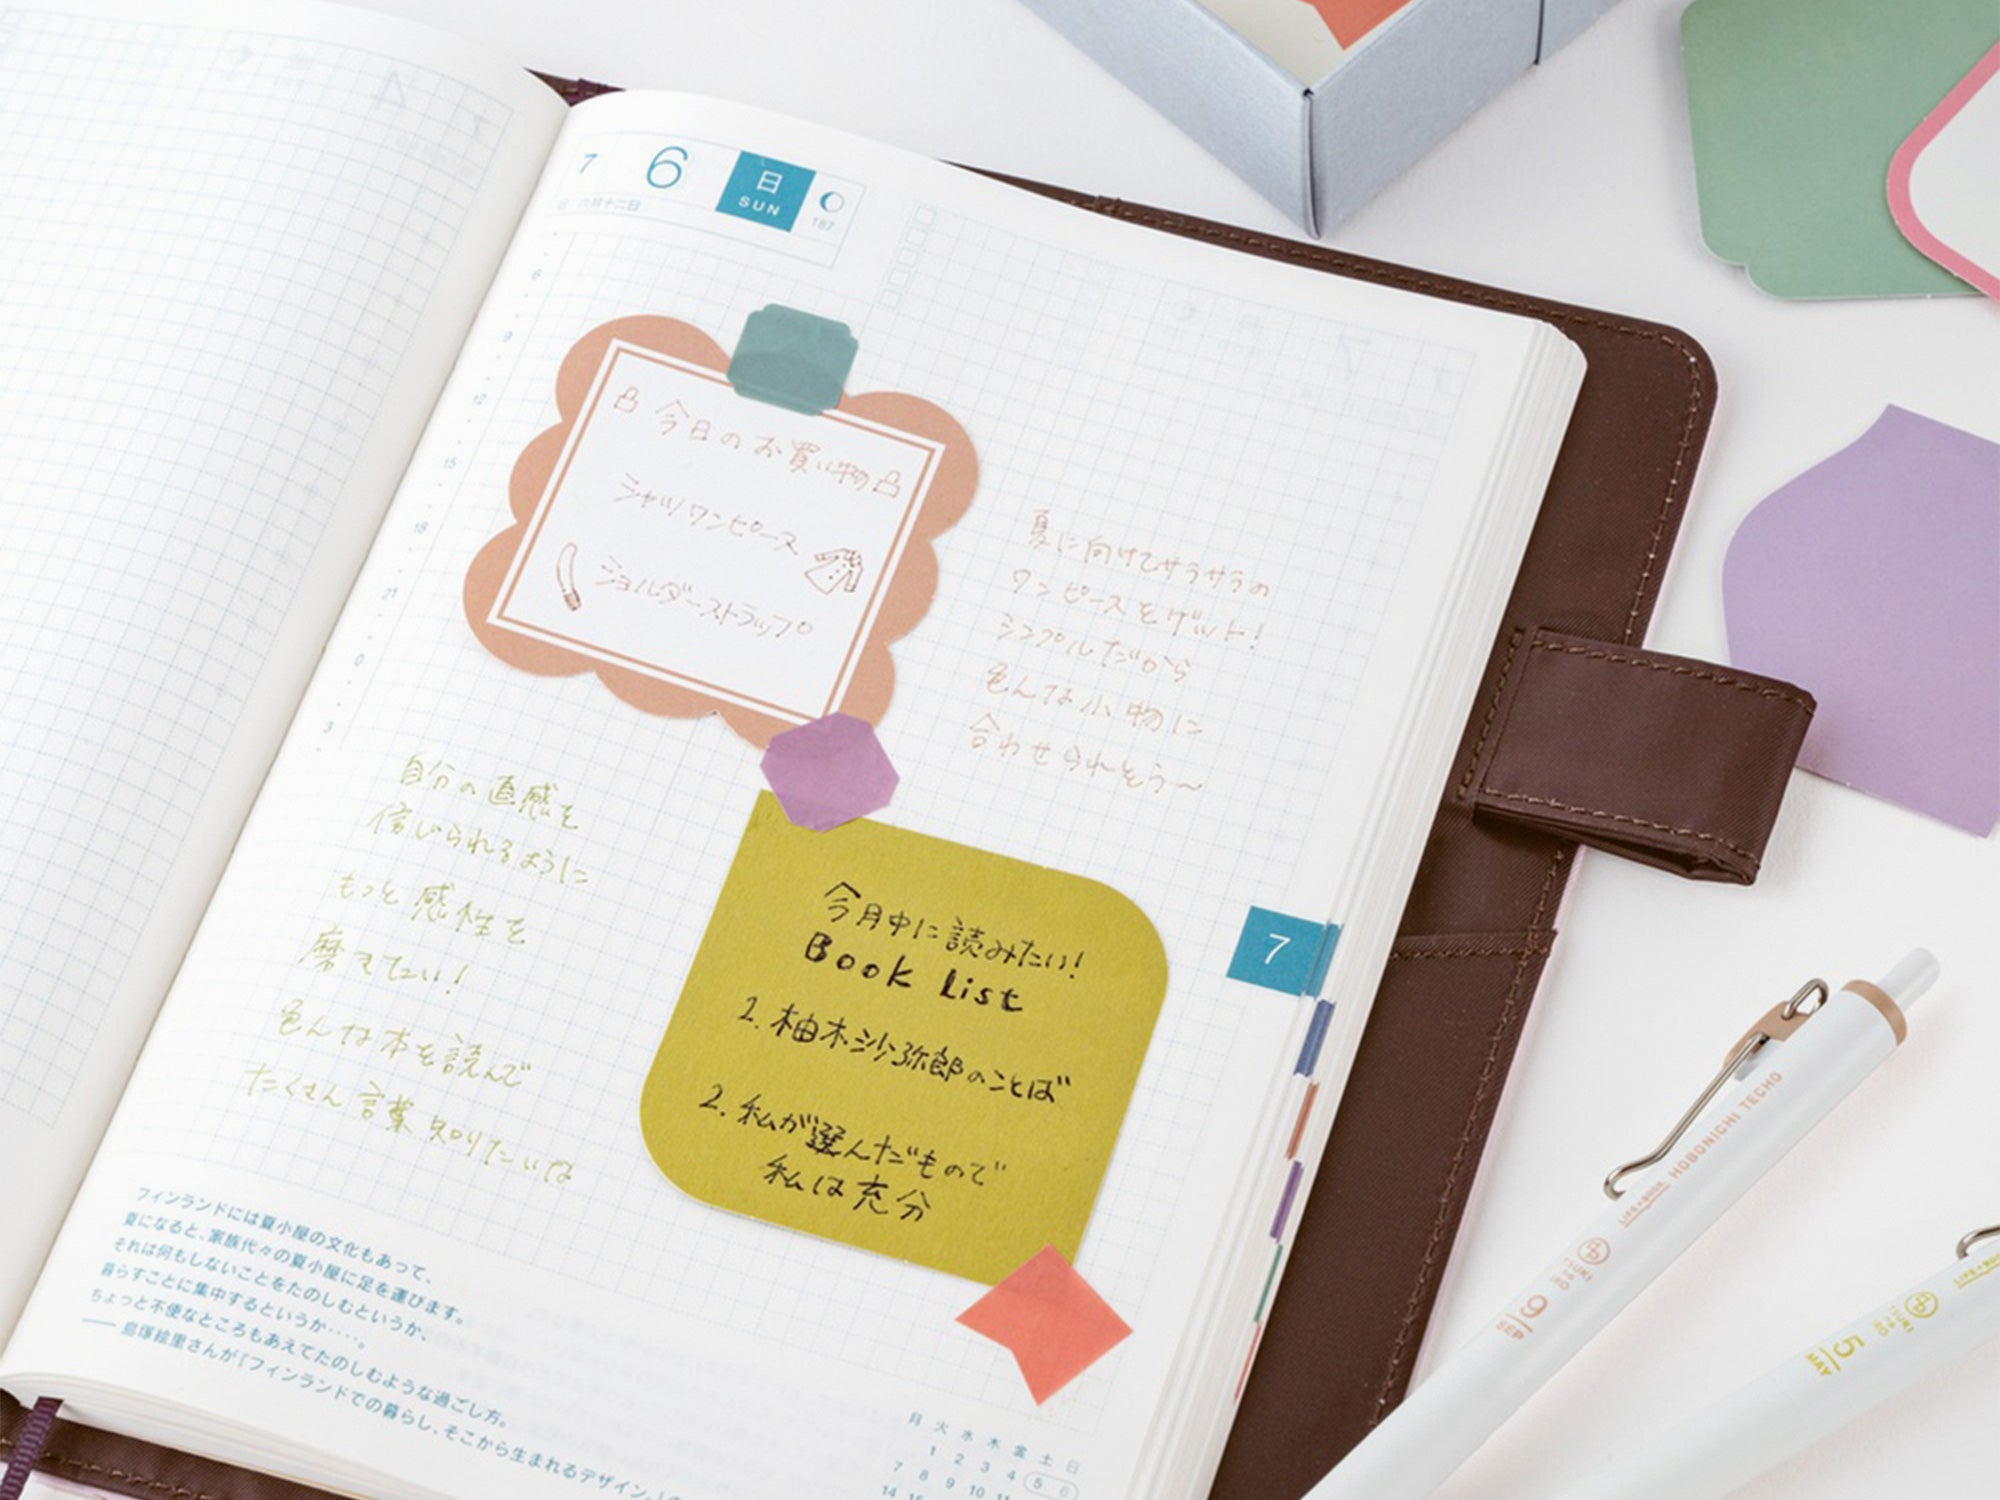 7 6 日 SUN
旧 六月十二日 187
6
9
12
15
18
21
0
3
今日のお買い物
シャツワンピース
ショルダーストラップ
夏に向けてサラサラの
ワンピースをゲット!
シンプルだから
色んな小物に
合わせられそう〜
自分の直感を
信じられるように
もっと感性を
磨きたい!
色んな本を読んで
たくさん言葉知りたいな
今月中に読みたい!
Book List
1. 柚木沙弥郎のことば
2. 私が選んだもので
私は充分
7
フィンランドには夏小屋の文化もあって、
夏になると、家族代々の夏小屋に足を運びます。
それは何もしないことをたのしむというか、
暮らすことに集中するというか‥‥。
ちょっと不便なところもあえてたのしむような過ごし方。
── 島塚絵里さんが『フィンランドでの暮らし、そこから生まれるデザイン。』の
月 火 水 木 金 土 日
1 2 3 4 5 6
7 8 9 10 11
14 15
LIFE+BOOK HOBONICHI TECHO
SEP/9
LIFE+BOOK
MAY/5